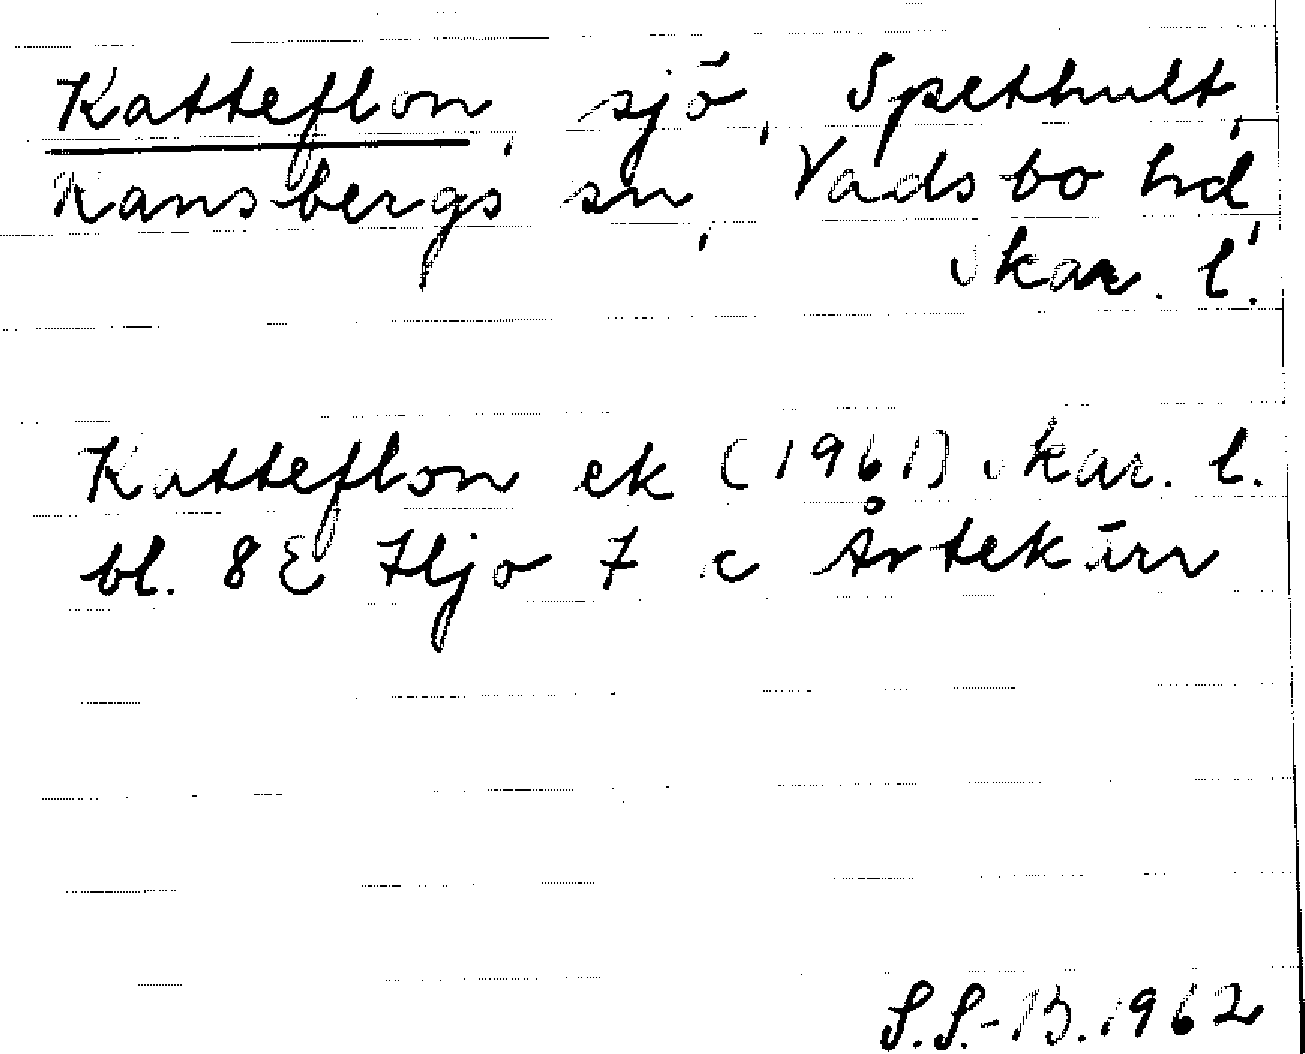 Katteflon, sjö, Spethult,
Ransbergs sn, Vadsbo hd,
Skar. l.
Katteflon ek (1961) Skar. l.
bl. 8E Hjo 7 c Årtekärr
S.S.-B. 1962